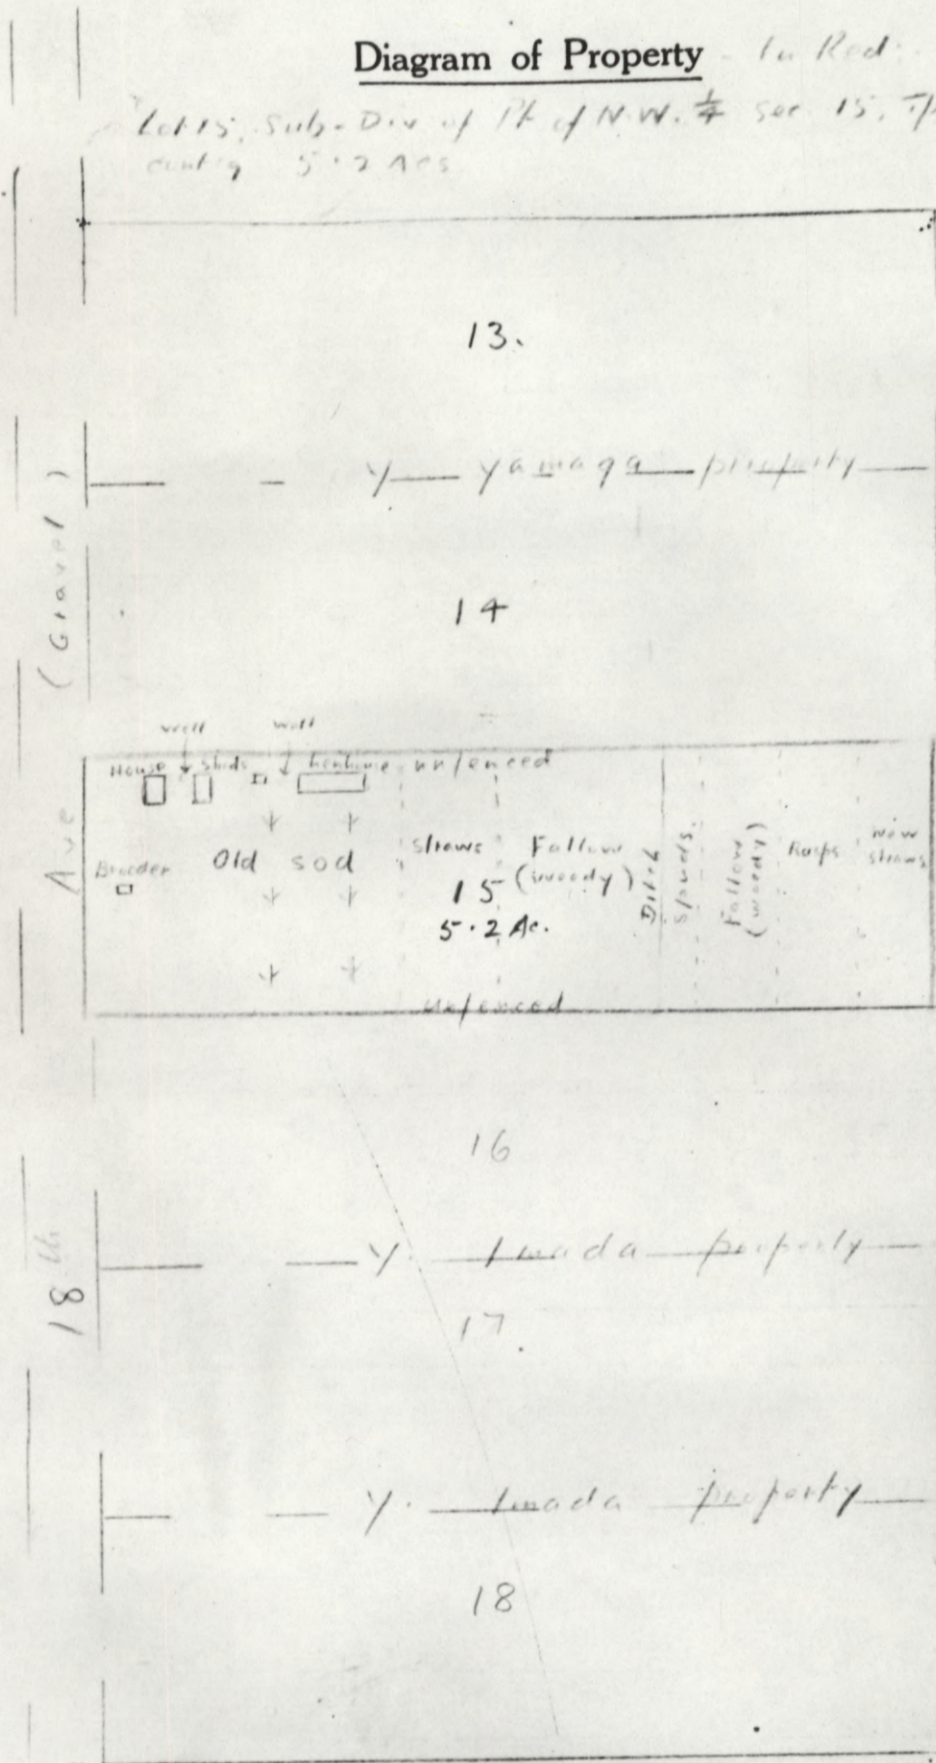 Diagram of Property - In Red:
Lot 15, Sub-Div of Pt of N.W. ¼ Sec 15, Tp
5.2 Acs
13.
Y Yamaga property
14
well well
House Sheds henhouse unfenced
Brooder Old sod Straws Fallow (weedy) Ditch Spuds. Fallow (weedy) Rasps New straws
15
5.2 Ac.
unfenced
16
Y. Imada property
17.
Y. Imada property
18
18th Ave (Gravel)